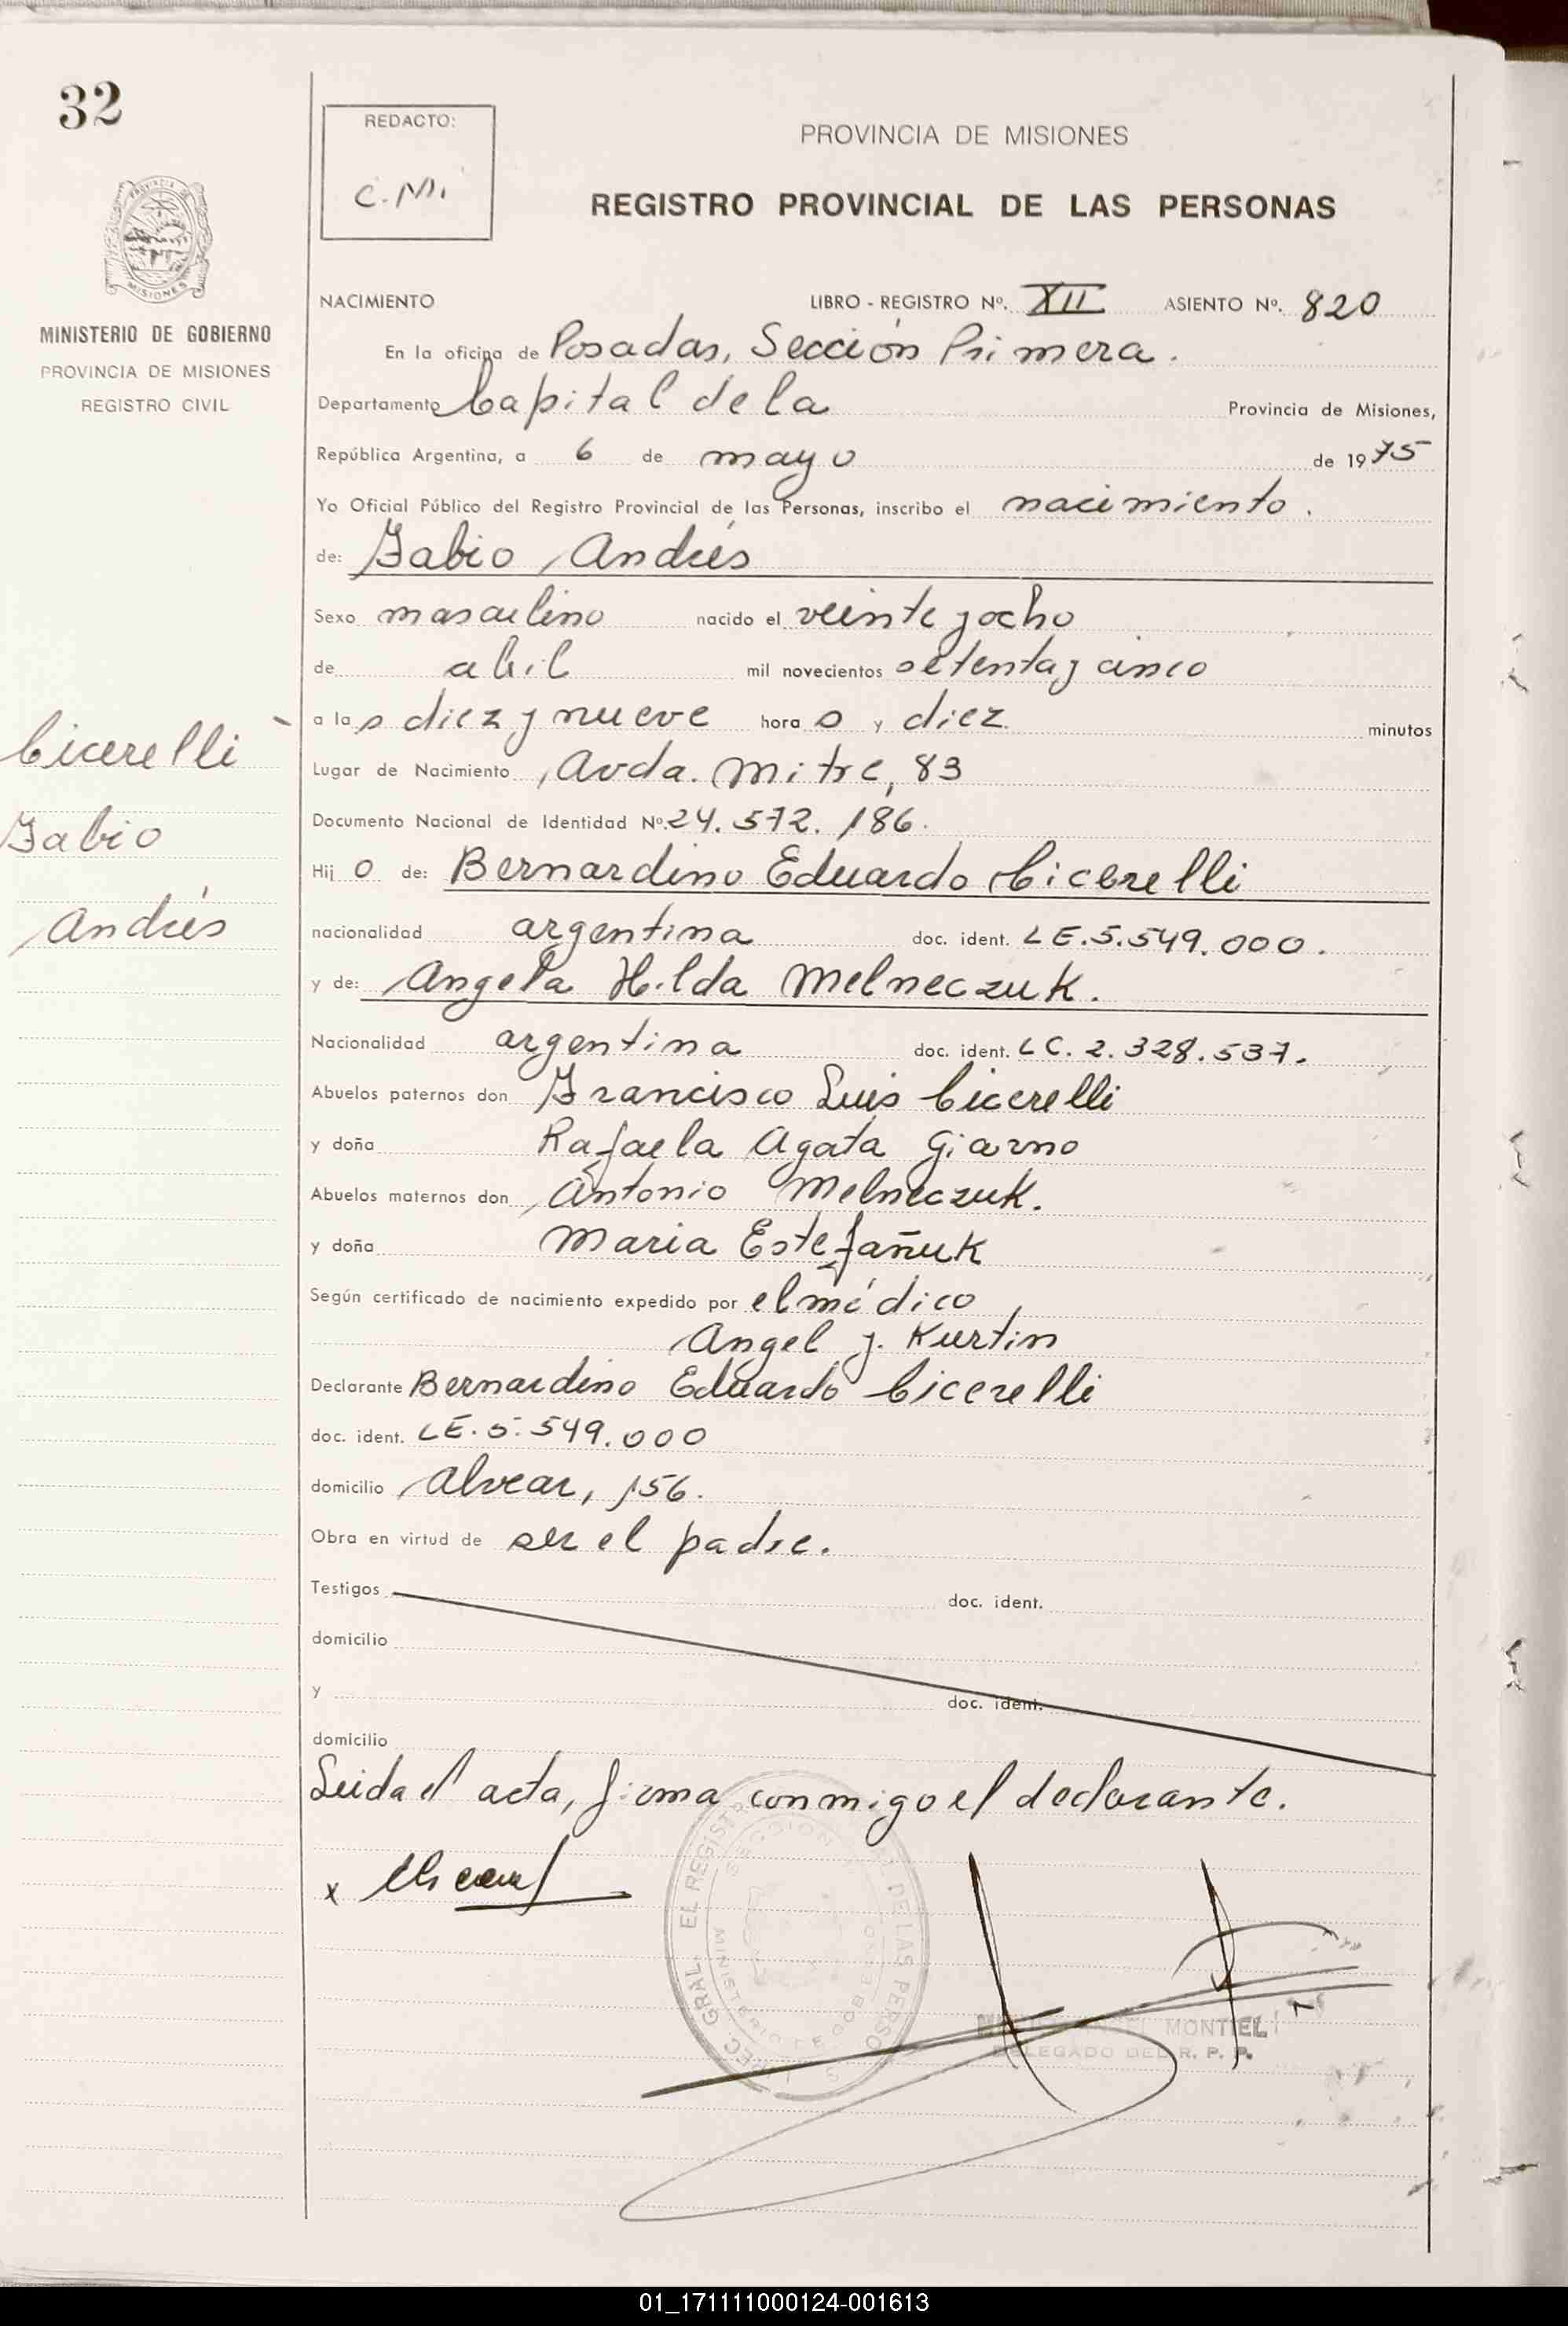 32
REDACTO:
C.M.
PROVINCIA DE MISIONES
REGISTRO PROVINCIAL DE LAS PERSONAS
MISIONES
MINISTERIO DE GOBIERNO
PROVINCIA DE MISIONES
REGISTRO CIVIL
NACIMIENTO LIBRO - REGISTRO Nº. XII ASIENTO Nº. 820
En la oficina de Posadas, Sección Primera.
Departamento Capital de la Provincia de Misiones,
República Argentina, a 6 de mayo de 1975
Yo Oficial Público del Registro Provincial de las Personas, inscribo el nacimiento.
de: Fabio Andrés
Sexo masculino nacido el veinte y ocho
de abril mil novecientos setenta y cinco
a las diez y nueve horas y diez minutos
Lugar de Nacimiento Avda. Mitre, 83
Documento Nacional de Identidad Nº. 24.572.186.
Hijo de: Bernardino Eduardo Cicerelli
nacionalidad argentina doc. ident. LE.5.549.000.
y de: Angela Hilda Melneczuk.
Nacionalidad argentina doc. ident. LC. 2.328.537.
Abuelos paternos don Francisco Luis Cicerelli
y doña Rafaela Agata Giarno
Abuelos maternos don Antonio Melneczuk.
y doña Maria Estefañuk
Según certificado de nacimiento expedido por el médico
Angel J. Kurtin
Declarante Bernardino Eduardo Cicerelli
doc. ident. LE.5.549.000
domicilio Alvear, 156.
Obra en virtud de ser el padre.
Testigos doc. ident.
domicilio
y doc. ident.
domicilio
Leida el acta, firma conmigo el declarante.
Cicerelli
Fabio
Andrés
x
MONTIEL
DELEGADO DEL R. P. P.
01_171111000124-001613